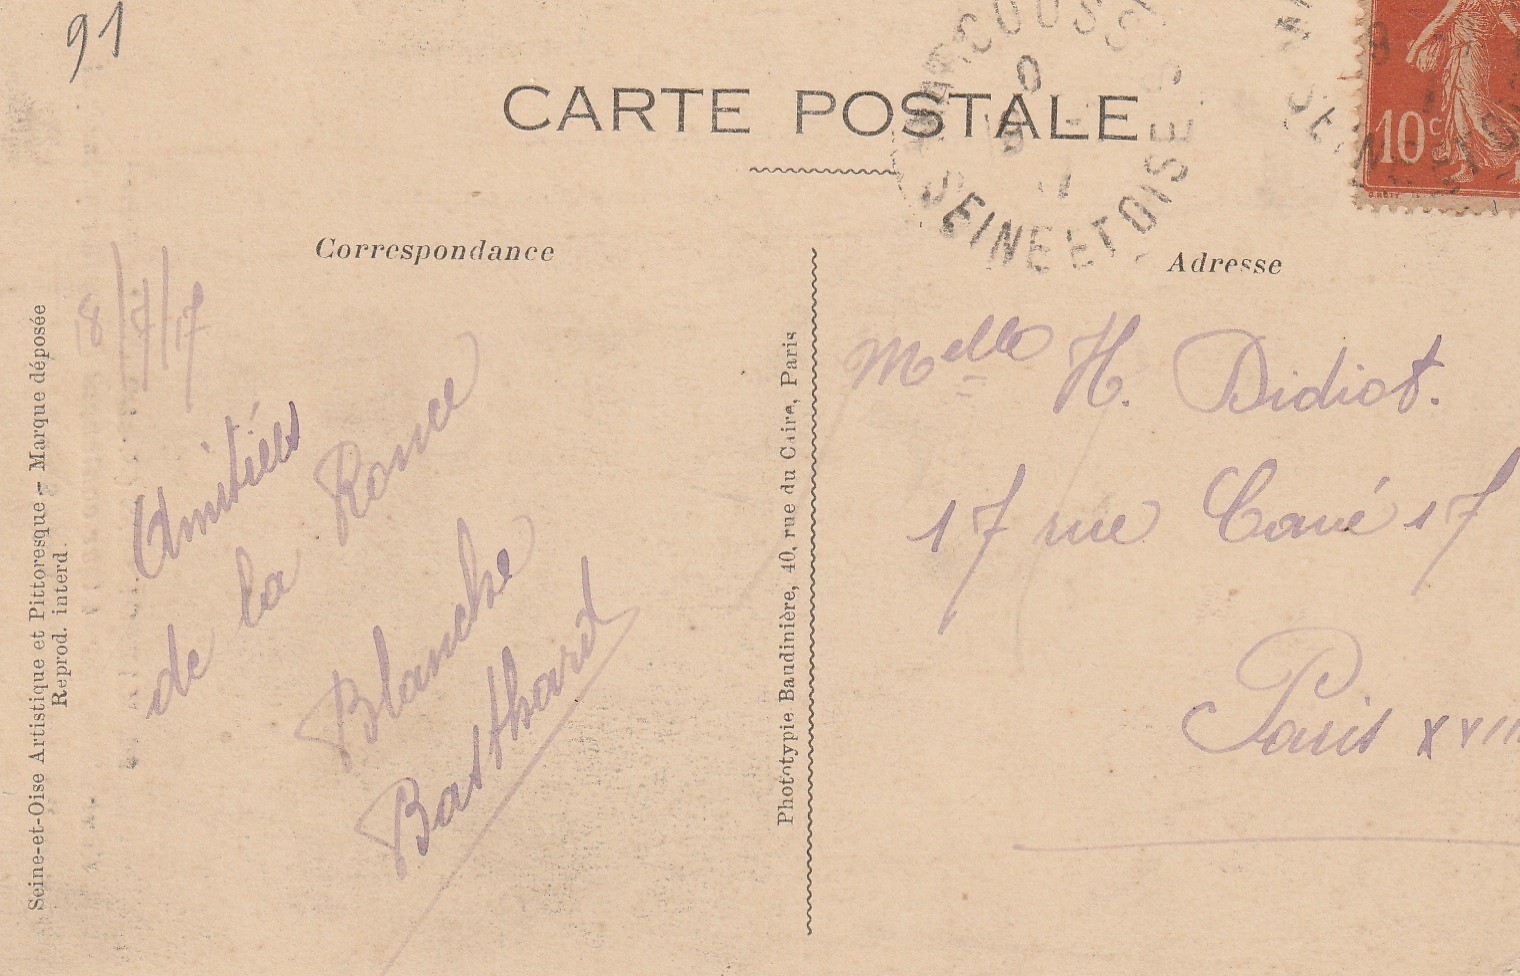 91
CARTE POSTALE
SEINE ET OISE
10c
Correspondance
Adresse
18/7/17
Amitiés
de la Ronce
Blanche
Melle H. Didiot.
17 rue Cavé 17
Paris XVIII
Seine-et-Oise Artistique et Pittoresque - Marque déposée
Reprod. interd.
Phototypie Baudinière, 40, rue du Caire, Paris